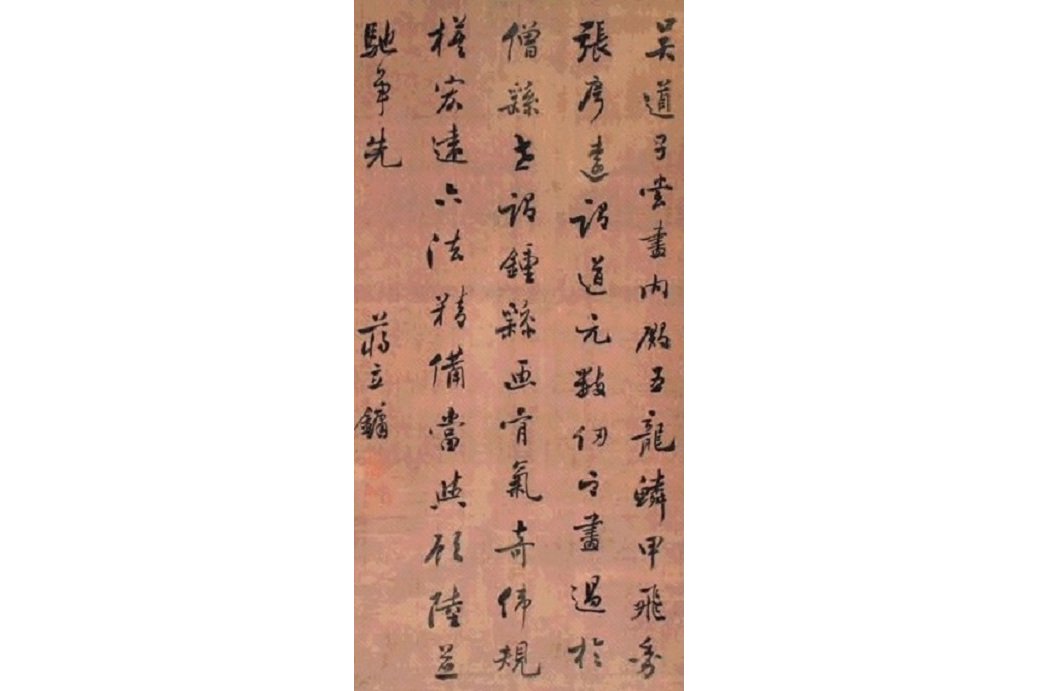 吴道子嘗畫内殿五龍鱗甲飛動
張彦遠謂道元數仞之畫過於
僧繇世謂鍾繇画骨氣奇偉規
模宏遠六法精備當與顧陸並
馳争先
蔣立鏞